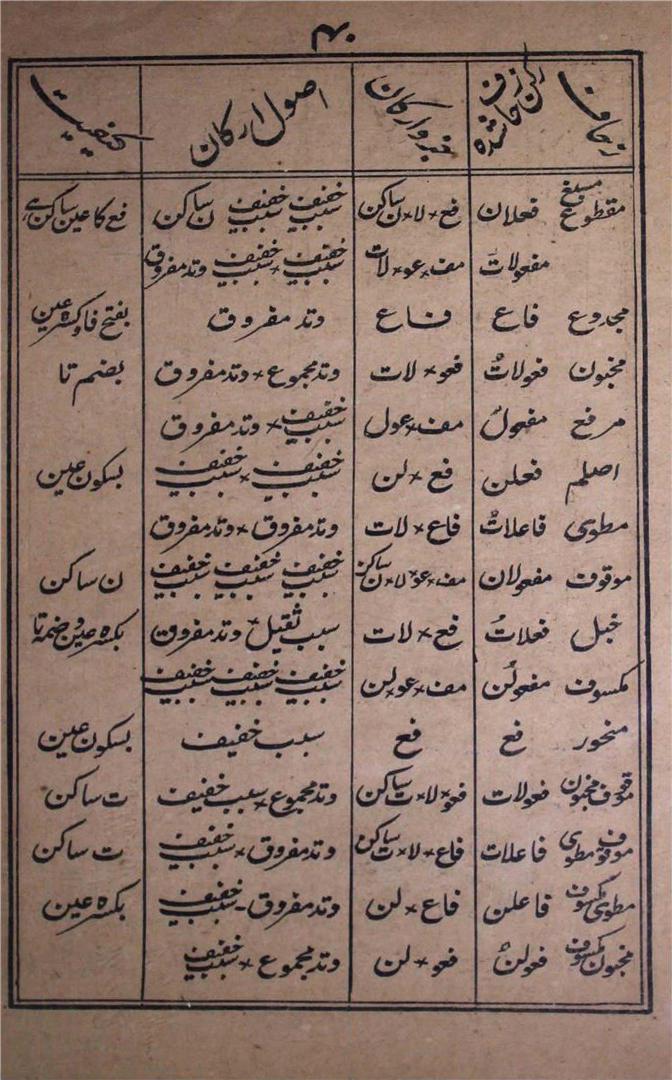 ۴۰
زحاف رکن زحاف شدہ جزو ارکان اصول ارکان کیفیت
مقطوع مسبغ فعلان فع × لا × ن ساکن سبب خفیف سبب خفیف ن ساکن فع کا عین ساکن ہے
مفعولات مف × عو × لات سبب خفیف × سبب خفیف وتد مفروق
مجدوع فاع فاع وتد مفروق بفتح فا وکسرہ عین
مخبون فعولات فعو × لات وتد مجموع × وتد مفروق بضم تا
مرفع مفعول مف × عول سبب خفیف × وتد مفروق
اصلم فعلن فع × لن سبب خفیف × سبب خفیف بسکون عین
مطوی فاعلات فاع × لات وتد مفروق × وتد مفروق
موقوف مفعولان مف × عو × لا × ن ساکن سبب خفیف سبب خفیف سبب خفیف ن ساکن
خبل فعلات فع × لات سبب ثقیل × وتد مفروق بکسرہ عین و ضمہ تا
مکسوف مفعولن مف × عو × لن سبب خفیف سبب خفیف سبب خفیف
منحور فع فع سبب خفیف بسکون عین
موقوف مخبون فعولات فعو × لا × ت ساکن وتد مجموع × سبب خفیف ت ساکن
موقوف مطوی فاعلات فاع × لا × ت ساکن وتد مفروق × سبب خفیف ت ساکن
مطوی مکسوف فاعلن فاع × لن وتد مفروق - سبب خفیف بکسرہ عین
مخبون مکسوف فعولن فعو × لن وتد مجموع × سبب خفیف